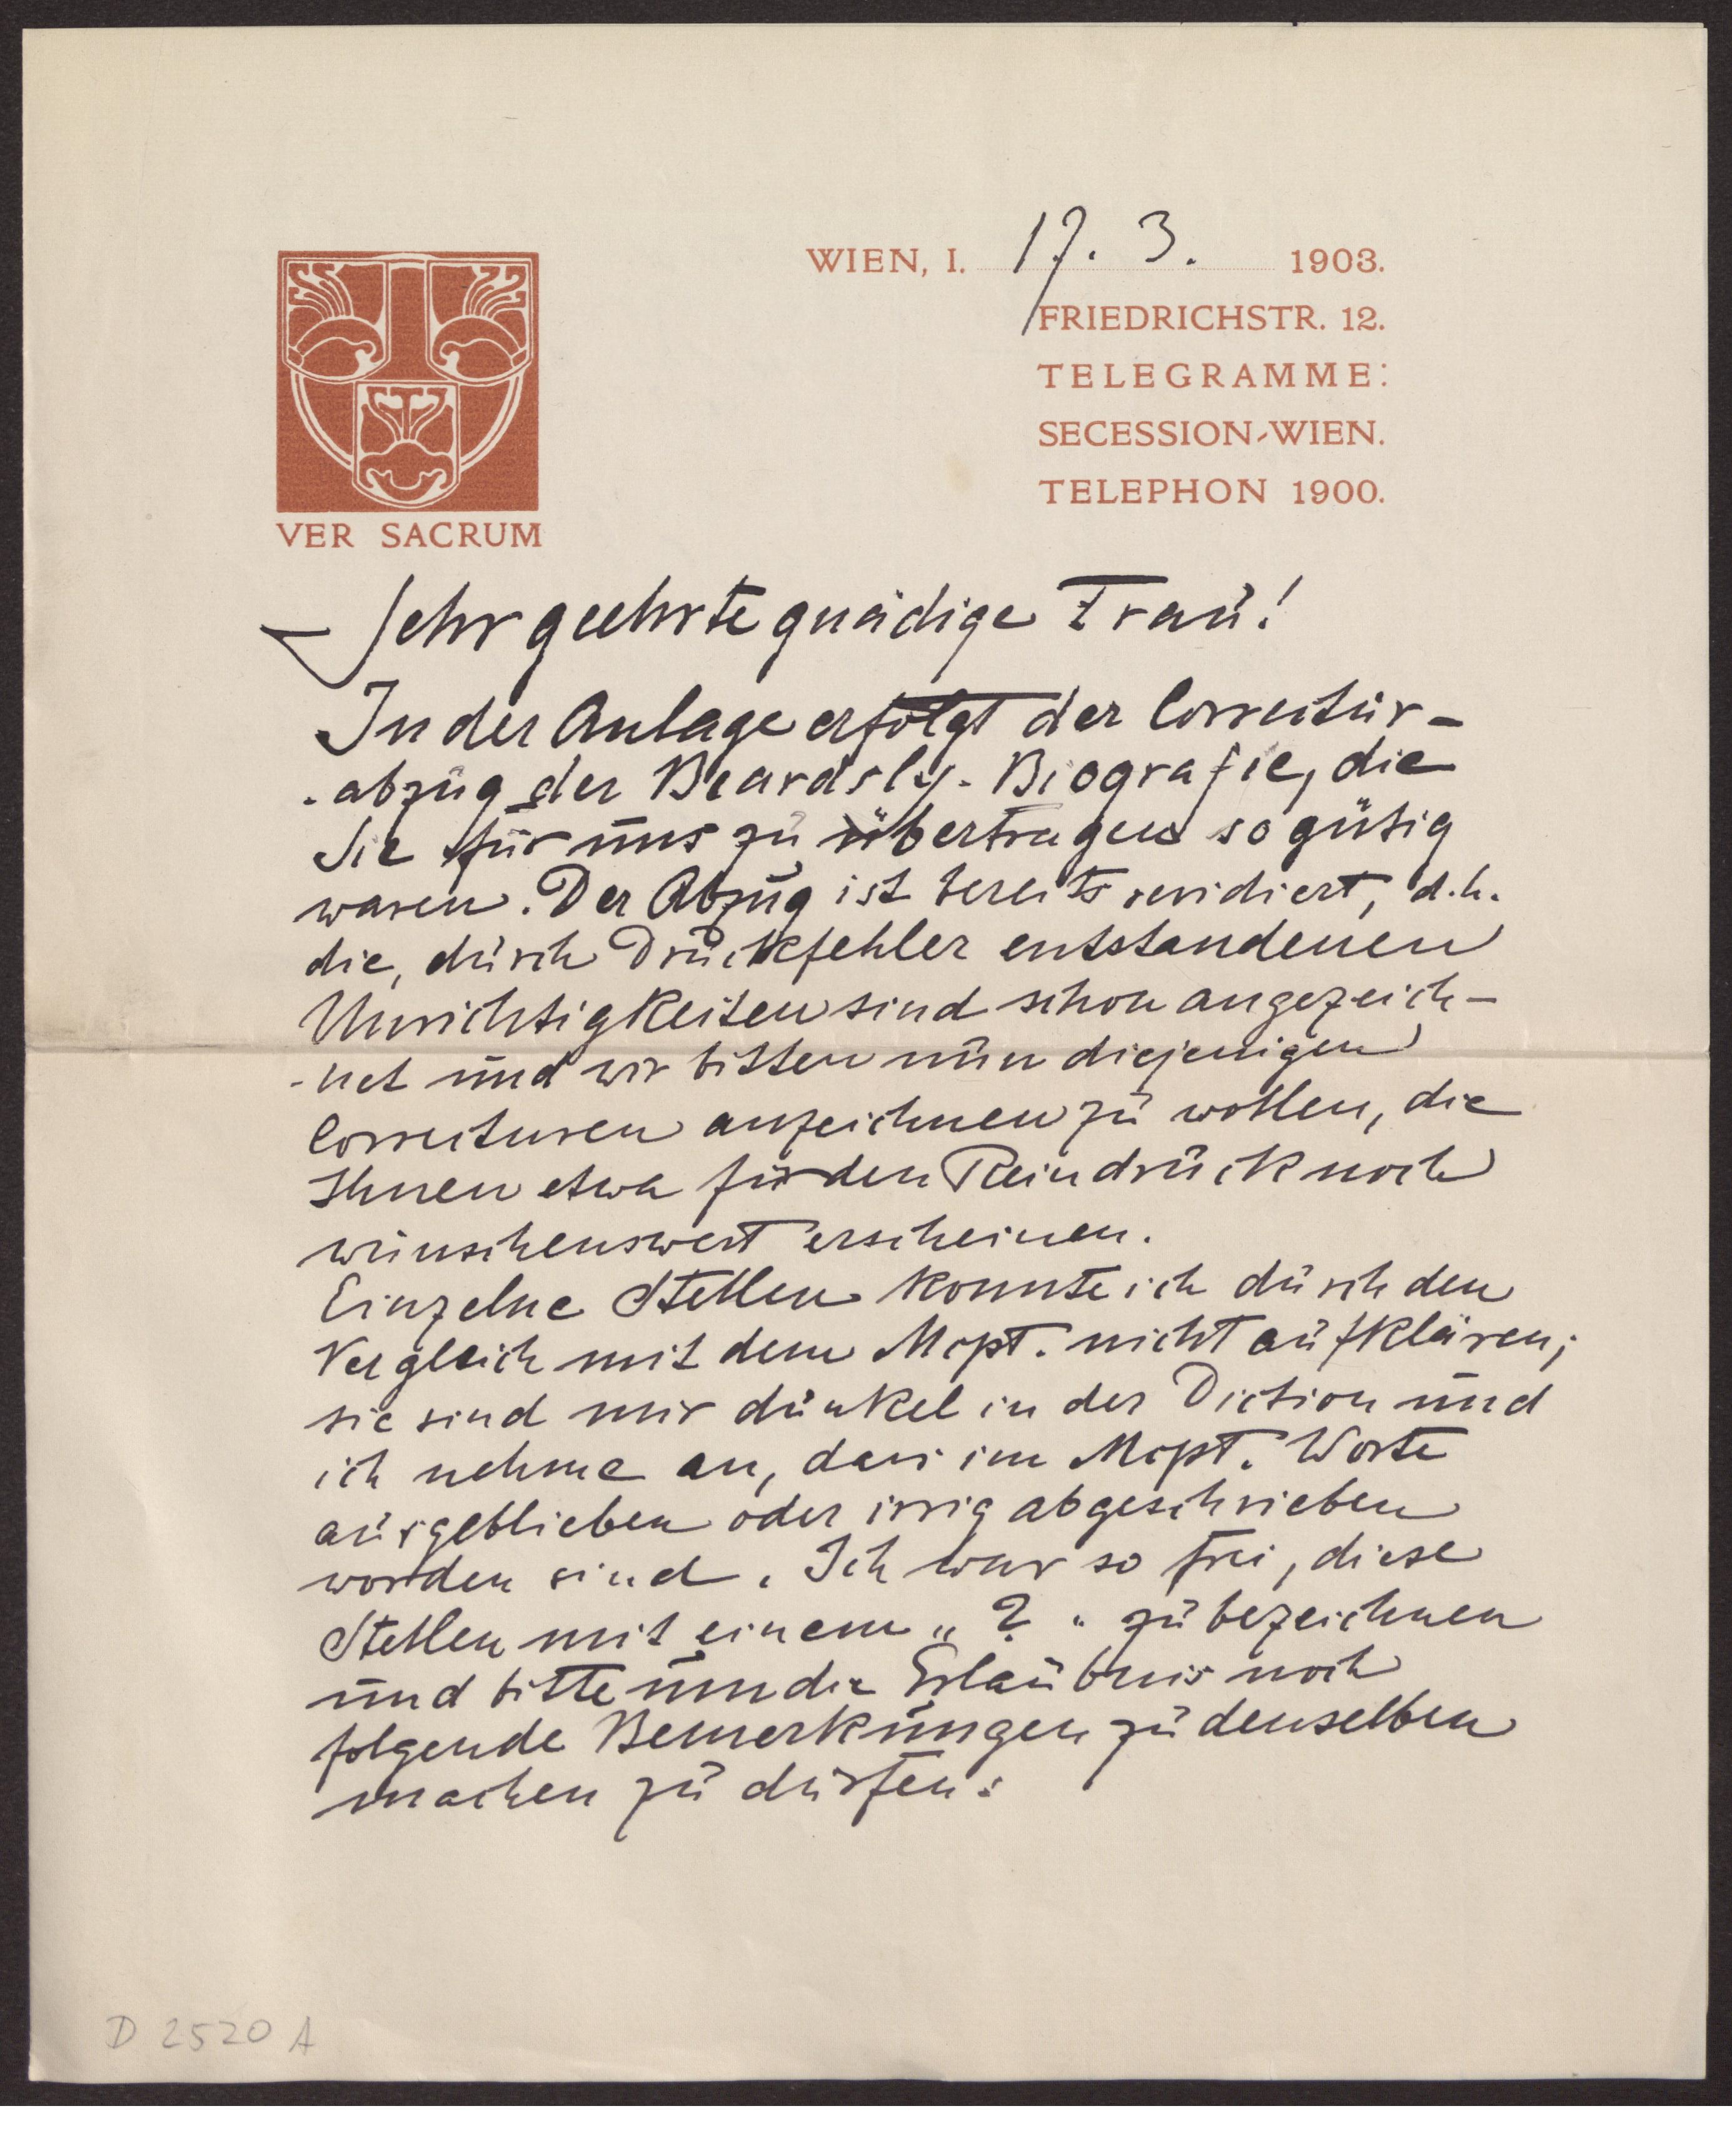 WIEN, I. 17. 3. 1903.
FRIEDRICHSTR. 12.
TELEGRAMME:
SECESSION-WIEN.
TELEPHON 1900.
VER SACRUM
Sehr geehrte gnädige Frau!
In der Anlage erfolgt der Correctur-
-abzug der Beardsly-Biografie, die
Sie für uns zu übertragen so gütig
waren. Der Abzug ist bereits revidiert, d.h.
die, durch Druckfehler entstandenen
Unrichtigkeiten sind schon angezeich-
-net und wir bitten nun diejenigen
Correcturen anzeichnen zu wollen, die
Ihnen etwa für den Reindruck noch
wünschenswert erscheinen.
Einzelne Stellen konnte ich durch den
Vergleich mit dem Mcpt. nicht aufklären;
sie sind mir dunkel in der Diction und
ich nehme an, dass im Mcpt. Worte
ausgeblieben oder irrig abgeschrieben
worden sind. Ich war so frei, diese
Stellen mit einem „?" zu bezeichnen
und bitte nun die Erlaubnis noch
folgende Bemerkungen zu denselben
machen zu dürfen:
D 2520 A